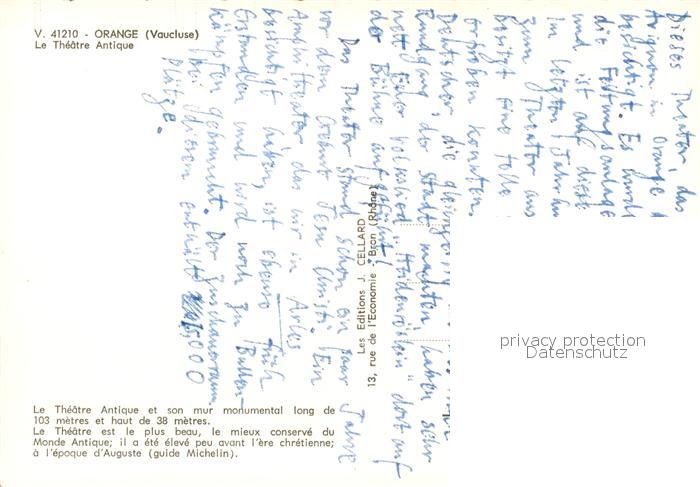 V. 41210 - ORANGE (Vaucluse)
Le Théâtre Antique
Dieses Theater, das
Avignon in Orange
besichtigt. Es wurde
die Festungsanlage
und ist auf diese
In letzten Jahr
zum Theater aus
besitzt eine tolle
erproben konnten.
Deutscher, die
Rundgang der Stadt machten, haben sehr
nett Volkslied "Heidenröslein" dort auf
der Bühne aufgeführt!
Das Theater stand schon ein paar Jahre
vor dem Geburt Jesu Christi. Ein
Amphitheater das wir in Arles
besichtigt haben, ist ebenso früh
Gestanden und wird noch zu Bullen-
kämpfen gebraucht. Der Zuschauerraum
bei diesen enthält 5000
Plätze.
Les Editions J. CELLARD
13, rue de l'Economie - Bron (Rhône)
privacy protection
Datenschutz
Le Théâtre Antique et son mur monumental long de
103 mètres et haut de 38 mètres.
Le Théâtre est le plus beau, le mieux conservé du
Monde Antique; il a été élevé peu avant l'ère chrétienne;
à l'époque d'Auguste (guide Michelin).